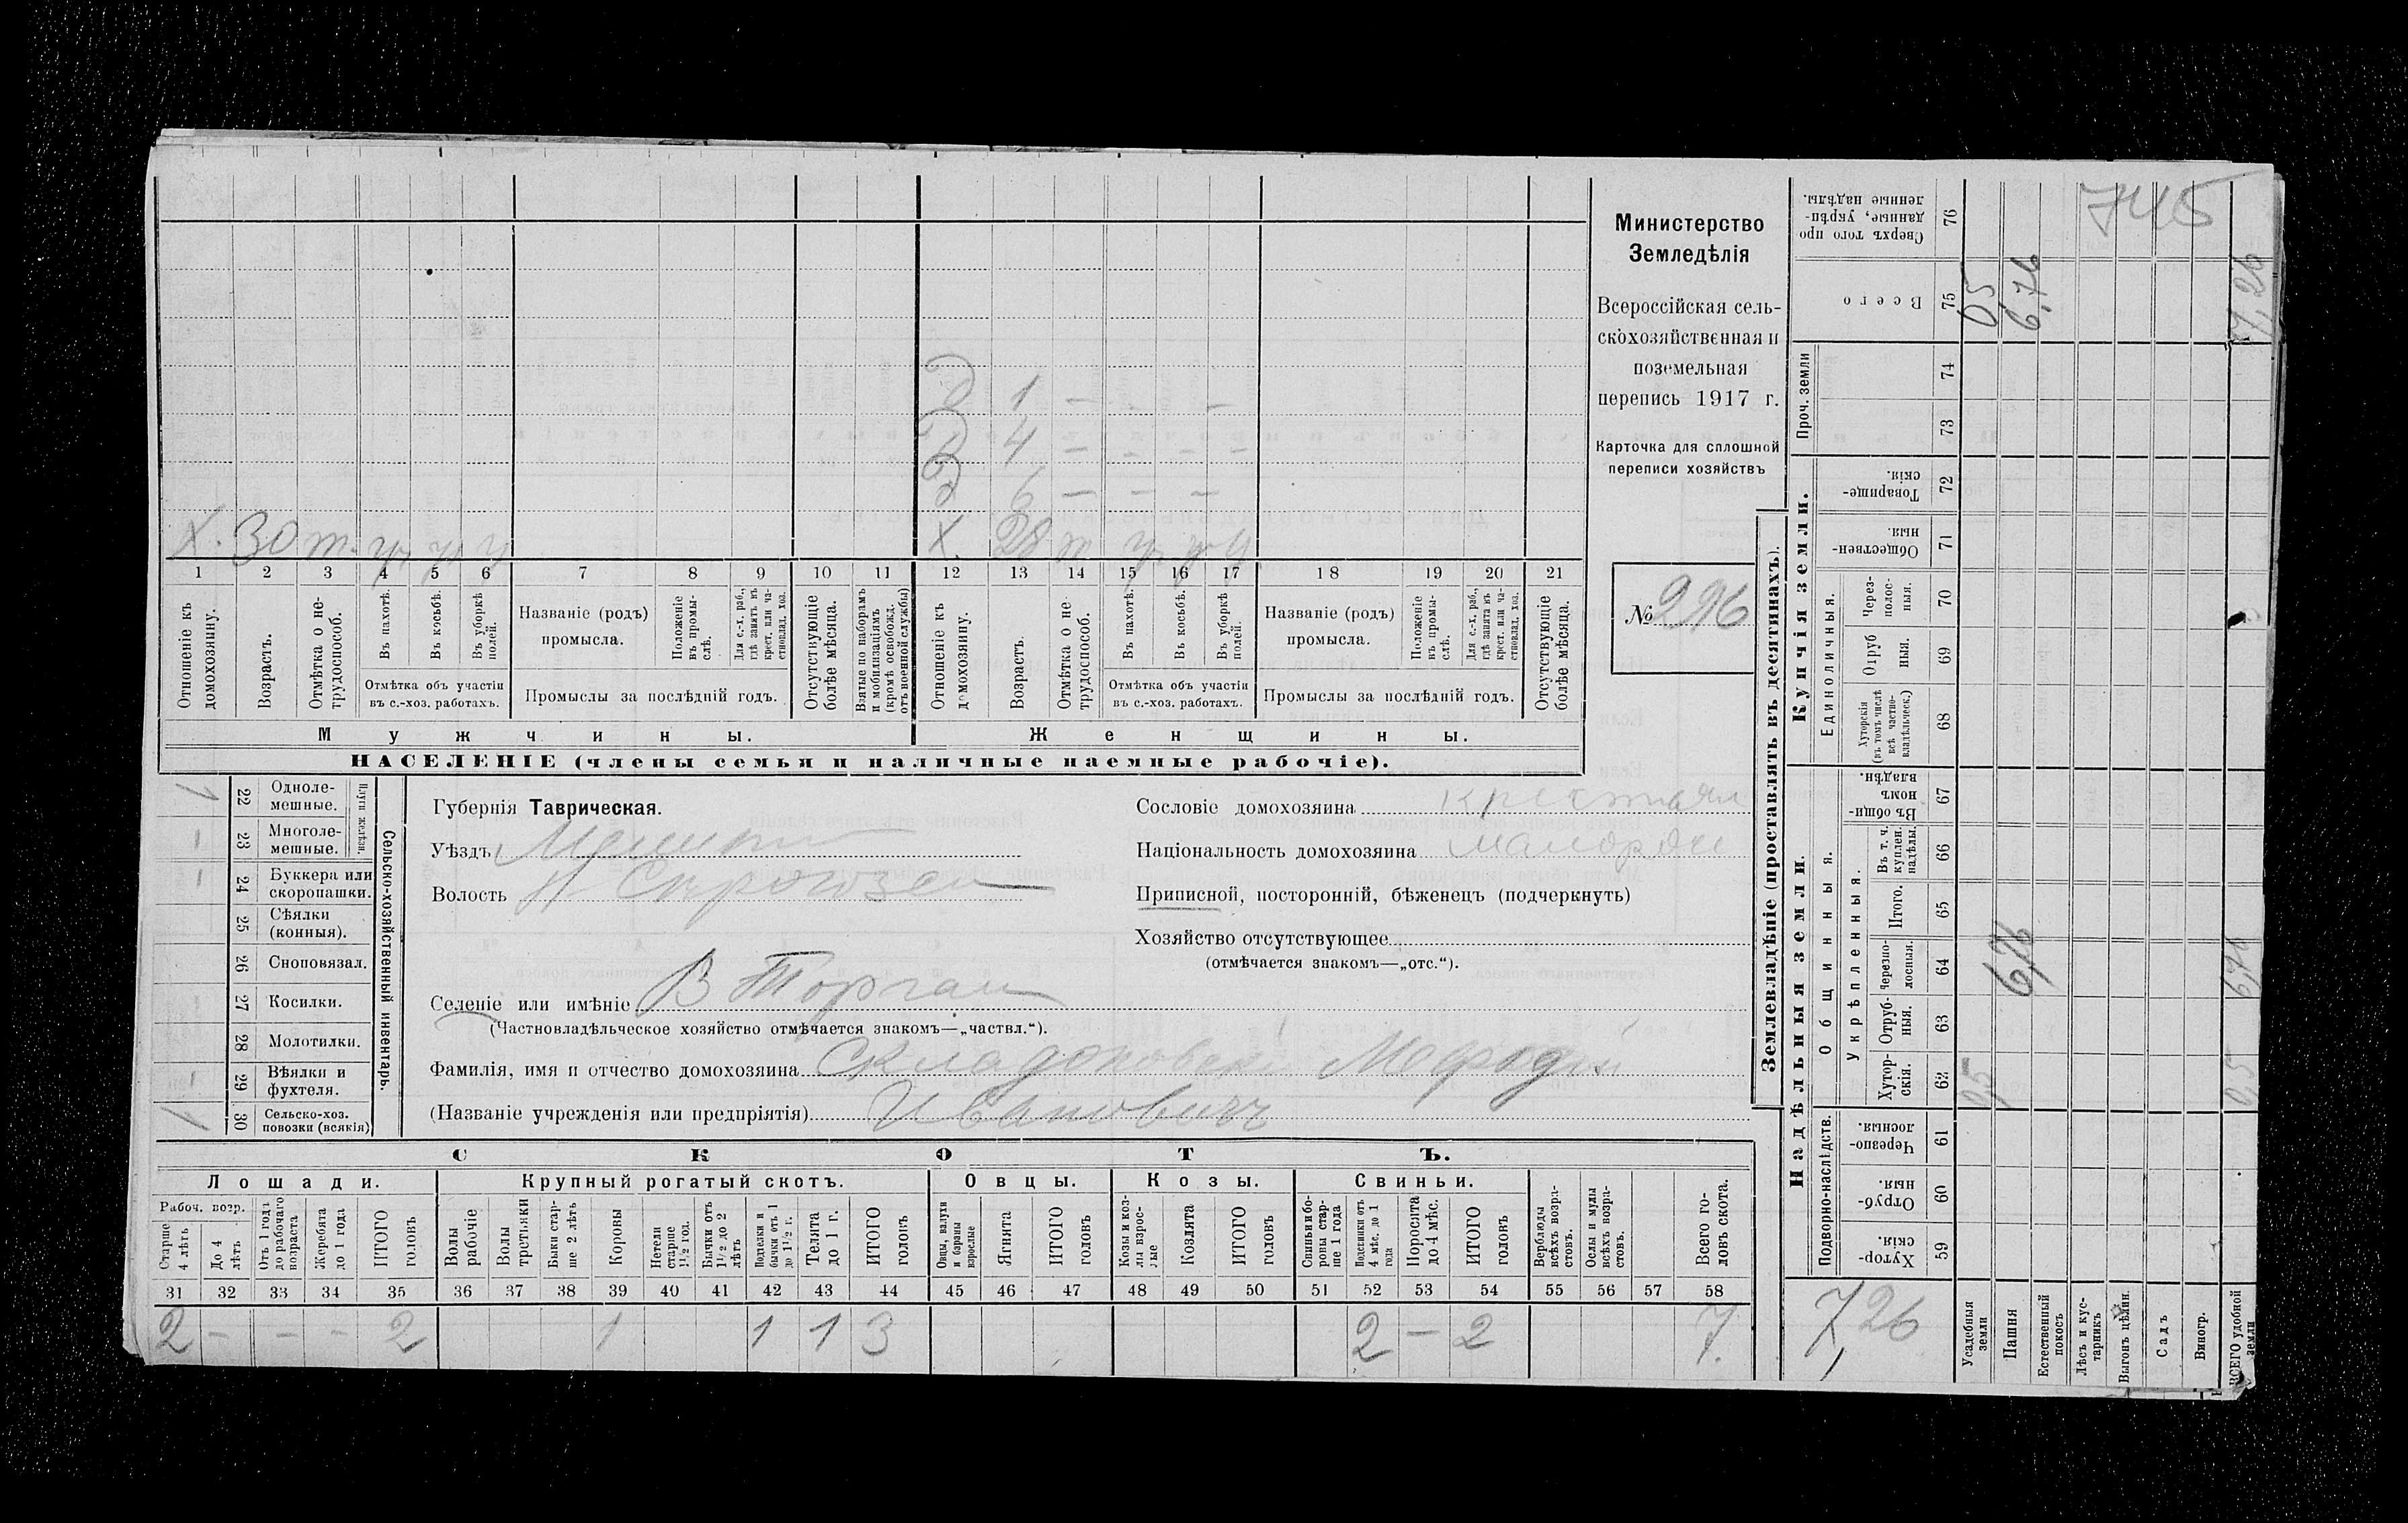 Х. 30 т. у у у
д 1 — — —
д 4 — — — —
д 6 — — —
Х. 28 т у у у
1 2 3 4 5 6 7 8 9 10 11 12 13 14 15 16 17 18 19 20 21
Отношеніе къ домохозяину.
Возрастъ.
Отмѣтка о не-трудоспособ.
Въ пахотѣ.
Въ косьбѣ.
Въ уборкѣ полей.
Отмѣтка объ участіи въ с.-хоз. работахъ.
Названіе (родъ) промысла.
Положеніе въ промы-слѣ.
Для с.-х. раб., гдѣ занятъ въ крест. или ча-стновлад. хоз.
Промыслы за послѣдній годъ.
Отсутствующіе болѣе мѣсяца.
Взятые по наборамъ и мобилизаціямъ (кромѣ освобожд. отъ военной службы)
Отношеніе къ домохозяину.
Возрастъ.
Отмѣтка о не-трудоспособ.
Въ пахотѣ.
Въ косьбѣ.
Въ уборкѣ полей.
Отмѣтка объ участіи въ с.-хоз. работахъ.
Названіе (родъ) промысла.
Положеніе въ промы-слѣ.
Для с.-х. раб., гдѣ занята въ крест. или ча-стновлад. хоз.
Промыслы за послѣдній годъ.
Отсутствующіе болѣе мѣсяца.
Мужчины.
Женщины.
НАСЕЛЕНІЕ (члены семьи и наличные наемные рабочіе).
Министерство
Земледѣлія
Всероссійская сель-
скохозяйственная и
поземельная
перепись 1917 г.
Карточка для сплошной
переписи хозяйствъ
№ 296
22 Одноле-мешные.
23 Многоле-мешные.
Плуги желѣзн.
24 Буккера или скоропашки.
25 Сѣялки (конныя).
26 Сноповязал.
27 Косилки.
28 Молотилки.
29 Вѣялки и фухтеля.
30 Сельско-хоз. повозки (всякія)
Сельско-хозяйственный инвентарь.
Губернія Таврическая.
Уѣздъ
Волость Н Сѣрогозск
Селеніе или имѣніе В Торгаи
(Частновладѣльческое хозяйство отмѣчается знакомъ—„частвл.“).
Фамилія, имя и отчество домохозяина Мефодій
(Названіе учрежденія или предпріятія) Ивановичъ
Сословіе домохозяина крестьян
Національность домохозяина малорос
Приписной, посторонній, бѣженецъ (подчеркнуть)
Хозяйство отсутствующее
(отмѣчается знакомъ—„отс.“).
СКОТЪ.
Лошади.
Крупный рогатый скотъ.
Овцы.
Козы.
Свиньи.
Рабоч. возр.
Старше 4 лѣтъ
До 4 лѣтъ
Отъ 1 года до рабочаго возраста
Жеребята до 1 года
ИТОГО головъ
Волы рабочіе
Волы третьяки
Быки стар-ше 2 лѣтъ
Коровы
Нетели старше 1½ год.
Бычки отъ 1½ до 2 лѣтъ
Подтелки и бычки отъ 1 до 1½ г.
Телята до 1 г.
ИТОГО головъ
Овцы, валухи и бараны взрослые
Ягнята
ИТОГО головъ
Козы и коз-лы взрос-лые
Козлята
ИТОГО головъ
Свиньи и бо-ровы стар-ше 1 года
Подсвинки отъ 4 мѣс. до 1 года
Поросята до 4 мѣс.
ИТОГО головъ
Верблюды всѣхъ возра-стовъ.
Ослы и мулы всѣхъ возра-стовъ.
Всего го-ловъ скота.
31 32 33 34 35 36 37 38 39 40 41 42 43 44 45 46 47 48 49 50 51 52 53 54 55 56 57 58
2 — — — 2 1 1 1 3 2 — 2 7.
Землевладѣніе (проставлять въ десятинахъ).
Надѣльныя земли.
Купчія земли.
Проч. земли
Сверхъ того про-данные, укрѣп-ленные надѣлы. 76
Всего 75
74
73
Товарище-скія. 72
Обществен-ныя 71
Единоличныя.
Через-полос-ныя. 70
Отруб-ныя. 69
Хуторскія (въ томъ числѣ всѣ частно-владѣльческ.) 68
Общинныя.
Укрѣпленныя.
Въ общи-номъ владѣн. 67
Въ т. ч. куплен. надѣлы. 66
Итого. 65
Черезпо-лосныя. 64
Отруб-ныя. 63
Хутор-скія. 62
Подворно-наслѣдств.
Черезпо-лосныя. 61
Отруб-ныя. 60
Хутор-скія. 59
Усадебныя земли
Пашня
Естественный покосъ
Лѣсъ и кус-тарникъ
Выгонъ цѣлин.
Садъ
Виногр.
ВСЕГО удобной земли
745
05
6,76
7,26
6,76
6,76
0,5
0,5
7,26